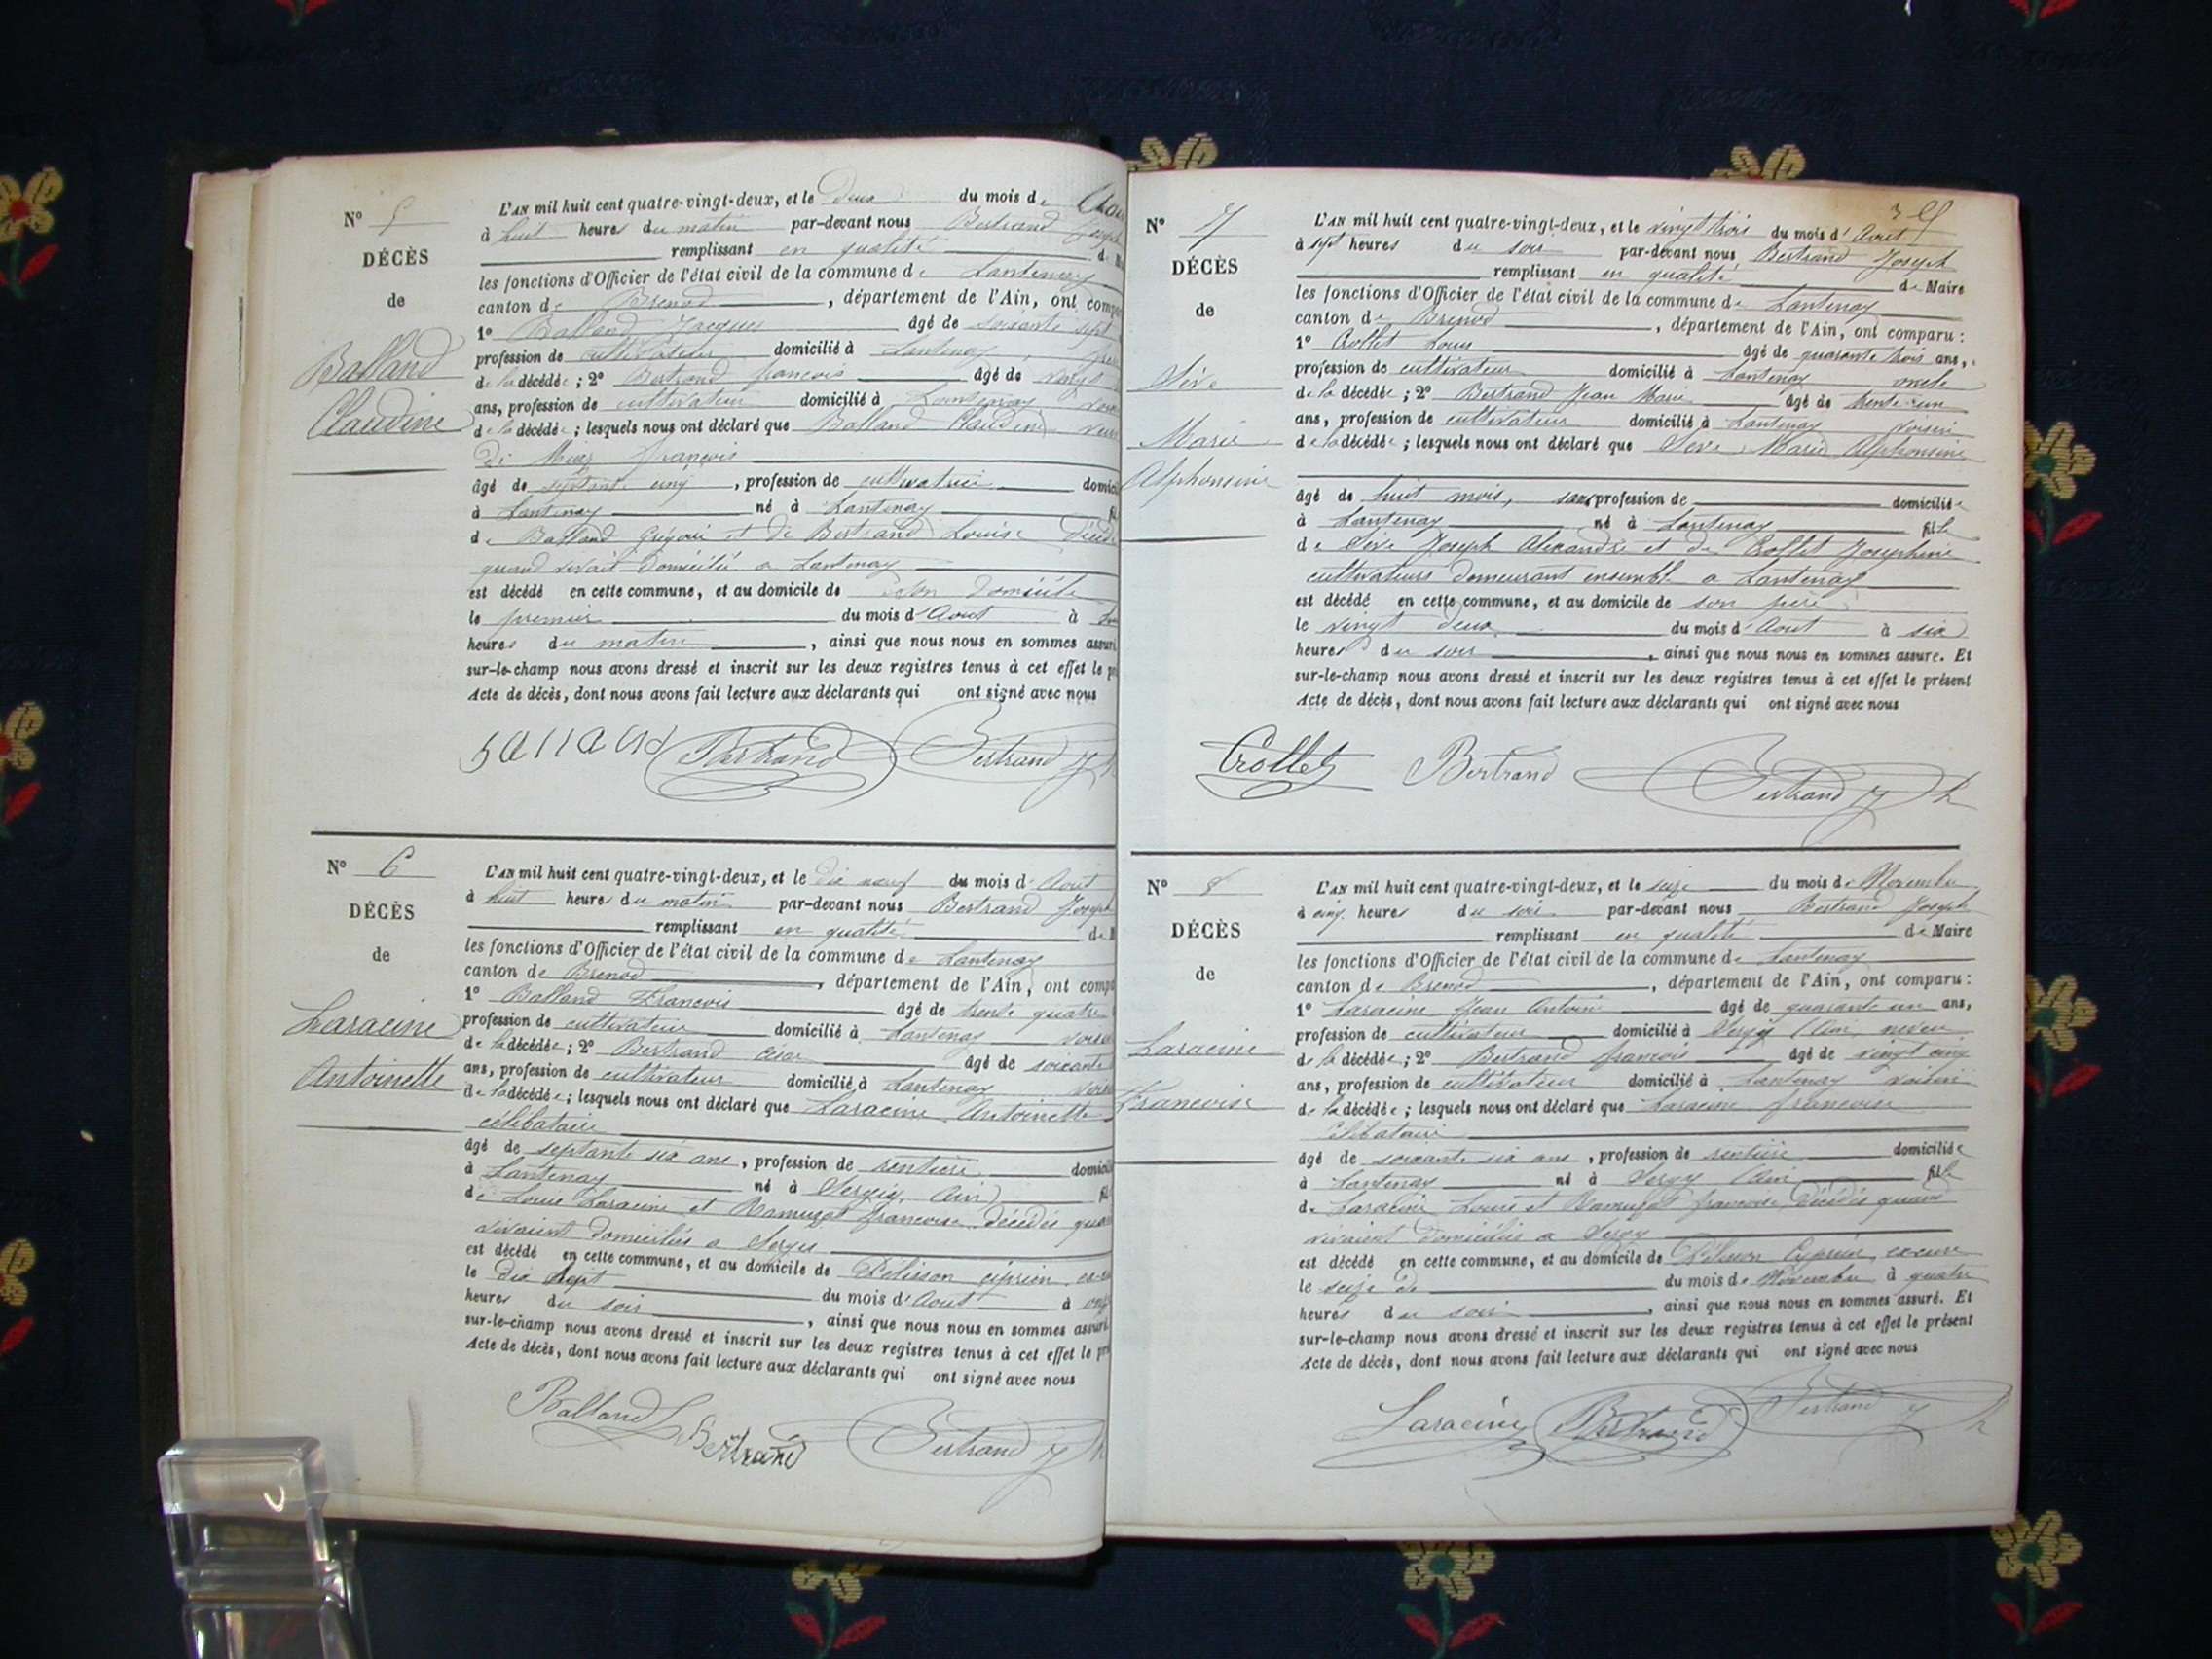 N° 5
DÉCÈS
de
Balland
Claudine
L'AN mil huit cent quatre-vingt-deux, et le deux du mois d
à huit heures du matin par-devant nous Bertrand Joseph
remplissant en qualité d
les fonctions d'Officier de l'état civil de la commune de Lantenay
canton de Brenod, département de l'Ain, ont comp
1° Balland Jacques âgé de soixante sept
profession de cultivateur domicilié à Lantenay
de la décédée ; 2° Bertrand françois âgé de vingt
ans, profession de cultivateur domicilié à Lantenay
de la décédée ; lesquels nous ont déclaré que Balland Claudine
de françois
âgé de septante cinq, profession de cultivatrice domici
à Lantenay né à Lantenay
de Balland Grégoire et de Bertrand Louise
quand vivait domicilié a Lantenay
est décédé en cette commune, et au domicile de son domicile
le premier du mois d'Aout à
heures du matin, ainsi que nous nous en sommes assuré
sur-le-champ nous avons dressé et inscrit sur les deux registres tenus à cet effet le p
Acte de décès, dont nous avons fait lecture aux déclarants qui ont signé avec nous
Bertrand Bertrand Jh
N° 6
DÉCÈS
de
Laracine
Antoinette
L'AN mil huit cent quatre-vingt-deux, et le dix neuf du mois d'Août
à huit heures du matin par-devant nous Bertrand Joseph
remplissant en qualité de M
les fonctions d'Officier de l'état civil de la commune de Lantenay
canton de Brenod, département de l'Ain, ont comp
1° Balland François âgé de trente quatre
profession de cultivateur domicilié à Lantenay
de la décédée ; 2° Bertrand César âgé de soixante
ans, profession de cultivateur domicilié à Lantenay
de la décédée ; lesquels nous ont déclaré que Laracine Antoinette
célibataire
âgé de septante six ans, profession de rentière domicil
à Lantenay né à Sergy (Ain)
de Louis Laracine et françoise décédés
vivaient domiciliés a Sergy
est décédé en cette commune, et au domicile de Pélisson ciprien
le dix sept du mois d'Aout à
heures du soir, ainsi que nous nous en sommes assuré
sur-le-champ nous avons dressé et inscrit sur les deux registres tenus à cet effet le p
Acte de décès, dont nous avons fait lecture aux déclarants qui ont signé avec nous
Balland Bertrand Bertrand Jh
N° 7
DÉCÈS
de
Sève
Marie
Alphonsine
L'AN mil huit cent quatre-vingt-deux, et le vingt trois du mois d'Aout
à sept heures du soir par-devant nous Bertrand Joseph
remplissant en qualité de Maire
les fonctions d'Officier de l'état civil de la commune de Lantenay
canton de Brenod, département de l'Ain, ont comparu :
1° Crollet Louis âgé de quarante trois ans,
profession de cultivateur domicilié à Lantenay oncle
de la décédée ; 2° Bertrand Jean Marie âgé de trente-un
ans, profession de cultivateur domicilié à Lantenay voisin
de la décédée ; lesquels nous ont déclaré que Sève Marie Alphonsine
âgé de huit mois, sans profession de domicilié
à Lantenay né à Lantenay fille
de Sève Joseph Alexandre et de Crollet Josephine
cultivateurs demeurant ensemble a Lantenay
est décédé en cette commune, et au domicile de son père
le vingt deux du mois d'Aout à six
heures du soir, ainsi que nous nous en sommes assuré. Et
sur-le-champ nous avons dressé et inscrit sur les deux registres tenus à cet effet le présent
Acte de décès, dont nous avons fait lecture aux déclarants qui ont signé avec nous
Crollet Bertrand Bertrand Jh
N° 8
DÉCÈS
de
Laracine
Francoise
L'AN mil huit cent quatre-vingt-deux, et le seize du mois de Novembre
à cinq heures du soir par-devant nous Bertrand Joseph
remplissant en qualité de Maire
les fonctions d'Officier de l'état civil de la commune de Lantenay
canton de Brenod, département de l'Ain, ont comparu :
1° Laracine Jean Antoine âgé de quarante un ans,
profession de cultivateur domicilié à Sergy (Ain) neveu
de la décédée ; 2° Bertrand françois âgé de vingt cinq
ans, profession de cultivateur domicilié à Lantenay voisin
de la décédée ; lesquels nous ont déclaré que Laracine francoise
célibataire
âgé de soixante six ans, profession de rentière domiciliée
à Lantenay né à Sergy (Ain) fille
de Laracine Louis et francoise décédés quand
vivaient domiciliés a Sergy
est décédé en cette commune, et au domicile de Pélisson Cyprien
le seize du mois de Novembre à quatre
heures du soir, ainsi que nous nous en sommes assuré. Et
sur-le-champ nous avons dressé et inscrit sur les deux registres tenus à cet effet le présent
Acte de décès, dont nous avons fait lecture aux déclarants qui ont signé avec nous
Laracine Bertrand Bertrand Jh